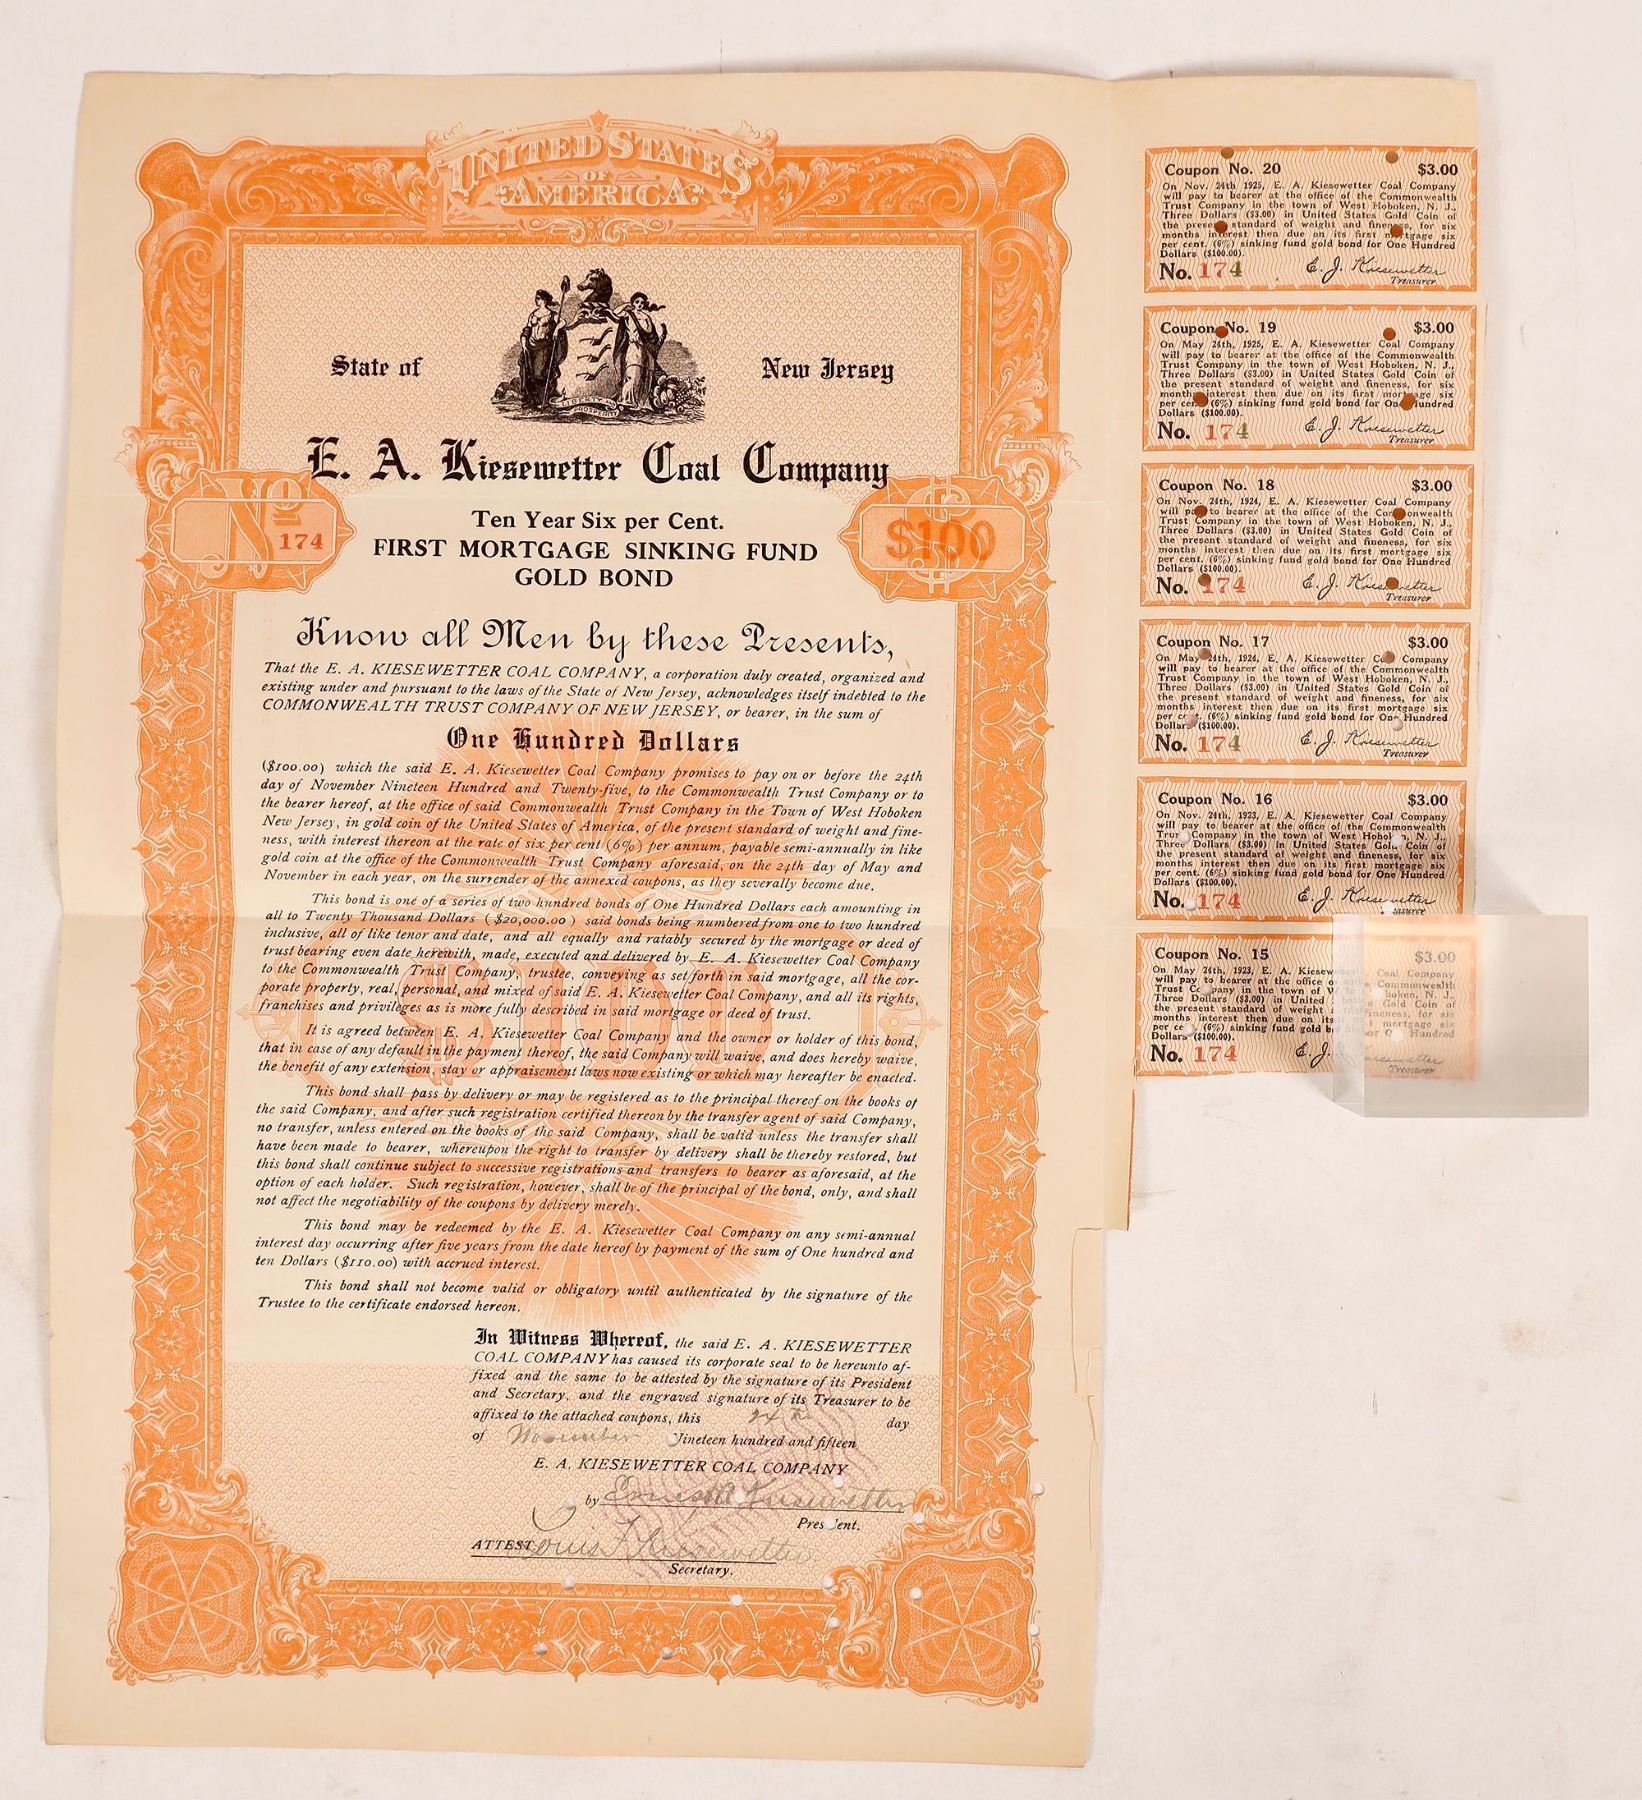 UNITED STATES
OF
AMERICA
State of New Jersey
LIBERTY AND
PROSPERITY
E. A. Kiesewetter Coal Company
No
174
$100
Ten Year Six per Cent.
FIRST MORTGAGE SINKING FUND
GOLD BOND
Know all Men by these Presents,
That the E. A. KIESEWETTER COAL COMPANY, a corporation duly created, organized and
existing under and pursuant to the laws of the State of New Jersey, acknowledges itself indebted to the
COMMONWEALTH TRUST COMPANY OF NEW JERSEY, or bearer, in the sum of
One Hundred Dollars
($100.00) which the said E. A. Kiesewetter Coal Company promises to pay on or before the 24th
day of November Nineteen Hundred and Twenty-five, to the Commonwealth Trust Company or to
the bearer hereof, at the office of said Commonwealth Trust Company in the Town of West Hoboken
New Jersey, in gold coin of the United States of America, of the present standard of weight and fine-
ness, with interest thereon at the rate of six per cent (6%) per annum, payable semi-annually in like
gold coin at the office of the Commonwealth Trust Company aforesaid, on the 24th day of May and
November in each year, on the surrender of the annexed coupons, as they severally become due.
This bond is one of a series of two hundred bonds of One Hundred Dollars each amounting in
all to Twenty Thousand Dollars ($20,000.00) said bonds being numbered from one to two hundred
inclusive, all of like tenor and date, and all equally and ratably secured by the mortgage or deed of
trust bearing even date herewith, made, executed and delivered by E. A. Kiesewetter Coal Company
to the Commonwealth Trust Company, trustee, conveying as set forth in said mortgage, all the cor-
porate property, real, personal, and mixed of said E. A. Kiesewetter Coal Company, and all its rights,
franchises and privileges as is more fully described in said mortgage or deed of trust.
It is agreed between E. A. Kiesewetter Coal Company and the owner or holder of this bond,
that in case of any default in the payment thereof, the said Company will waive, and does hereby waive,
the benefit of any extension, stay or appraisement laws now existing or which may hereafter be enacted.
This bond shall pass by delivery or may be registered as to the principal thereof on the books of
the said Company, and after such registration certified thereon by the transfer agent of said Company,
no transfer, unless entered on the books of the said Company, shall be valid unless the transfer shall
have been made to bearer, whereupon the right to transfer by delivery shall be thereby restored, but
this bond shall continue subject to successive registrations and transfers to bearer as aforesaid, at the
option of each holder. Such registration, however, shall be of the principal of the bond, only, and shall
not affect the negotiability of the coupons by delivery merely.
This bond may be redeemed by the E. A. Kiesewetter Coal Company on any semi-annual
interest day occurring after five years from the date hereof by payment of the sum of One hundred and
ten Dollars ($110.00) with accrued interest.
This bond shall not become valid or obligatory until authenticated by the signature of the
Trustee to the certificate endorsed hereon.
In Witness Whereof, the said E. A. KIESEWETTER
COAL COMPANY has caused its corporate seal to be hereunto af-
fixed and the same to be attested by the signature of its President
and Secretary, and the engraved signature of its Treasurer to be
affixed to the attached coupons, this 24th day
of November Nineteen hundred and fifteen
E. A. KIESEWETTER COAL COMPANY
by Ernest A Kiesewetter
President.
ATTEST: Louis F. Kiesewetter
Secretary.
Coupon No. 20 $3.00
On Nov. 24th 1925, E. A. Kiesewetter Coal Company
will pay to bearer at the office of the Commonwealth
Trust Company in the town of West Hoboken, N. J.,
Three Dollars ($3.00) in United States Gold Coin of
the present standard of weight and fineness, for six
months interest then due on its first mortgage six
per cent. (6%) sinking fund gold bond for One Hundred
Dollars ($100.00).
No. 174 E. J. Kiesewetter
Treasurer
Coupon No. 19 $3.00
On May 24th, 1925, E. A. Kiesewetter Coal Company
will pay to bearer at the office of the Commonwealth
Trust Company in the town of West Hoboken, N. J.,
Three Dollars ($3.00) in United States Gold Coin of
the present standard of weight and fineness, for six
months interest then due on its first mortgage six
per cent. (6%) sinking fund gold bond for One Hundred
Dollars ($100.00).
No. 174 E. J. Kiesewetter
Treasurer
Coupon No. 18 $3.00
On Nov. 24th, 1924, E. A. Kiesewetter Coal Company
will pay to bearer at the office of the Commonwealth
Trust Company in the town of West Hoboken, N. J.,
Three Dollars ($3.00) in United States Gold Coin of
the present standard of weight and fineness, for six
months interest then due on its first mortgage six
per cent. (6%) sinking fund gold bond for One Hundred
Dollars ($100.00).
No. 174 E. J. Kiesewetter
Treasurer
Coupon No. 17 $3.00
On May 24th, 1924, E. A. Kiesewetter Coal Company
will pay to bearer at the office of the Commonwealth
Trust Company in the town of West Hoboken, N. J.,
Three Dollars ($3.00) in United States Gold Coin of
the present standard of weight and fineness, for six
months interest then due on its first mortgage six
per cent. (6%) sinking fund gold bond for One Hundred
Dollars ($100.00).
No. 174 E. J. Kiesewetter
Treasurer
Coupon No. 16 $3.00
On Nov. 24th, 1923, E. A. Kiesewetter Coal Company
will pay to bearer at the office of the Commonwealth
Trust Company in the town of West Hoboken, N. J.,
Three Dollars ($3.00) in United States Gold Coin of
the present standard of weight and fineness, for six
months interest then due on its first mortgage six
per cent. (6%) sinking fund gold bond for One Hundred
Dollars ($100.00).
No. 174 E. J. Kiesewetter
Treasurer
Coupon No. 15 $3.00
On May 24th, 1923, E. A. Kiesew Coal Company
will pay to bearer at the office o Commonwealth
Trust Company in the town of W boken, N. J.,
Three Dollars ($3.00) in United Gold Coin of
the present standard of weight fineness, for six
months interest then due on its mortgage six
per cent. (6%) sinking fund gold b for One Hundred
Dollars ($100.00).
No. 174 E. J. Kiesewetter
Treasurer